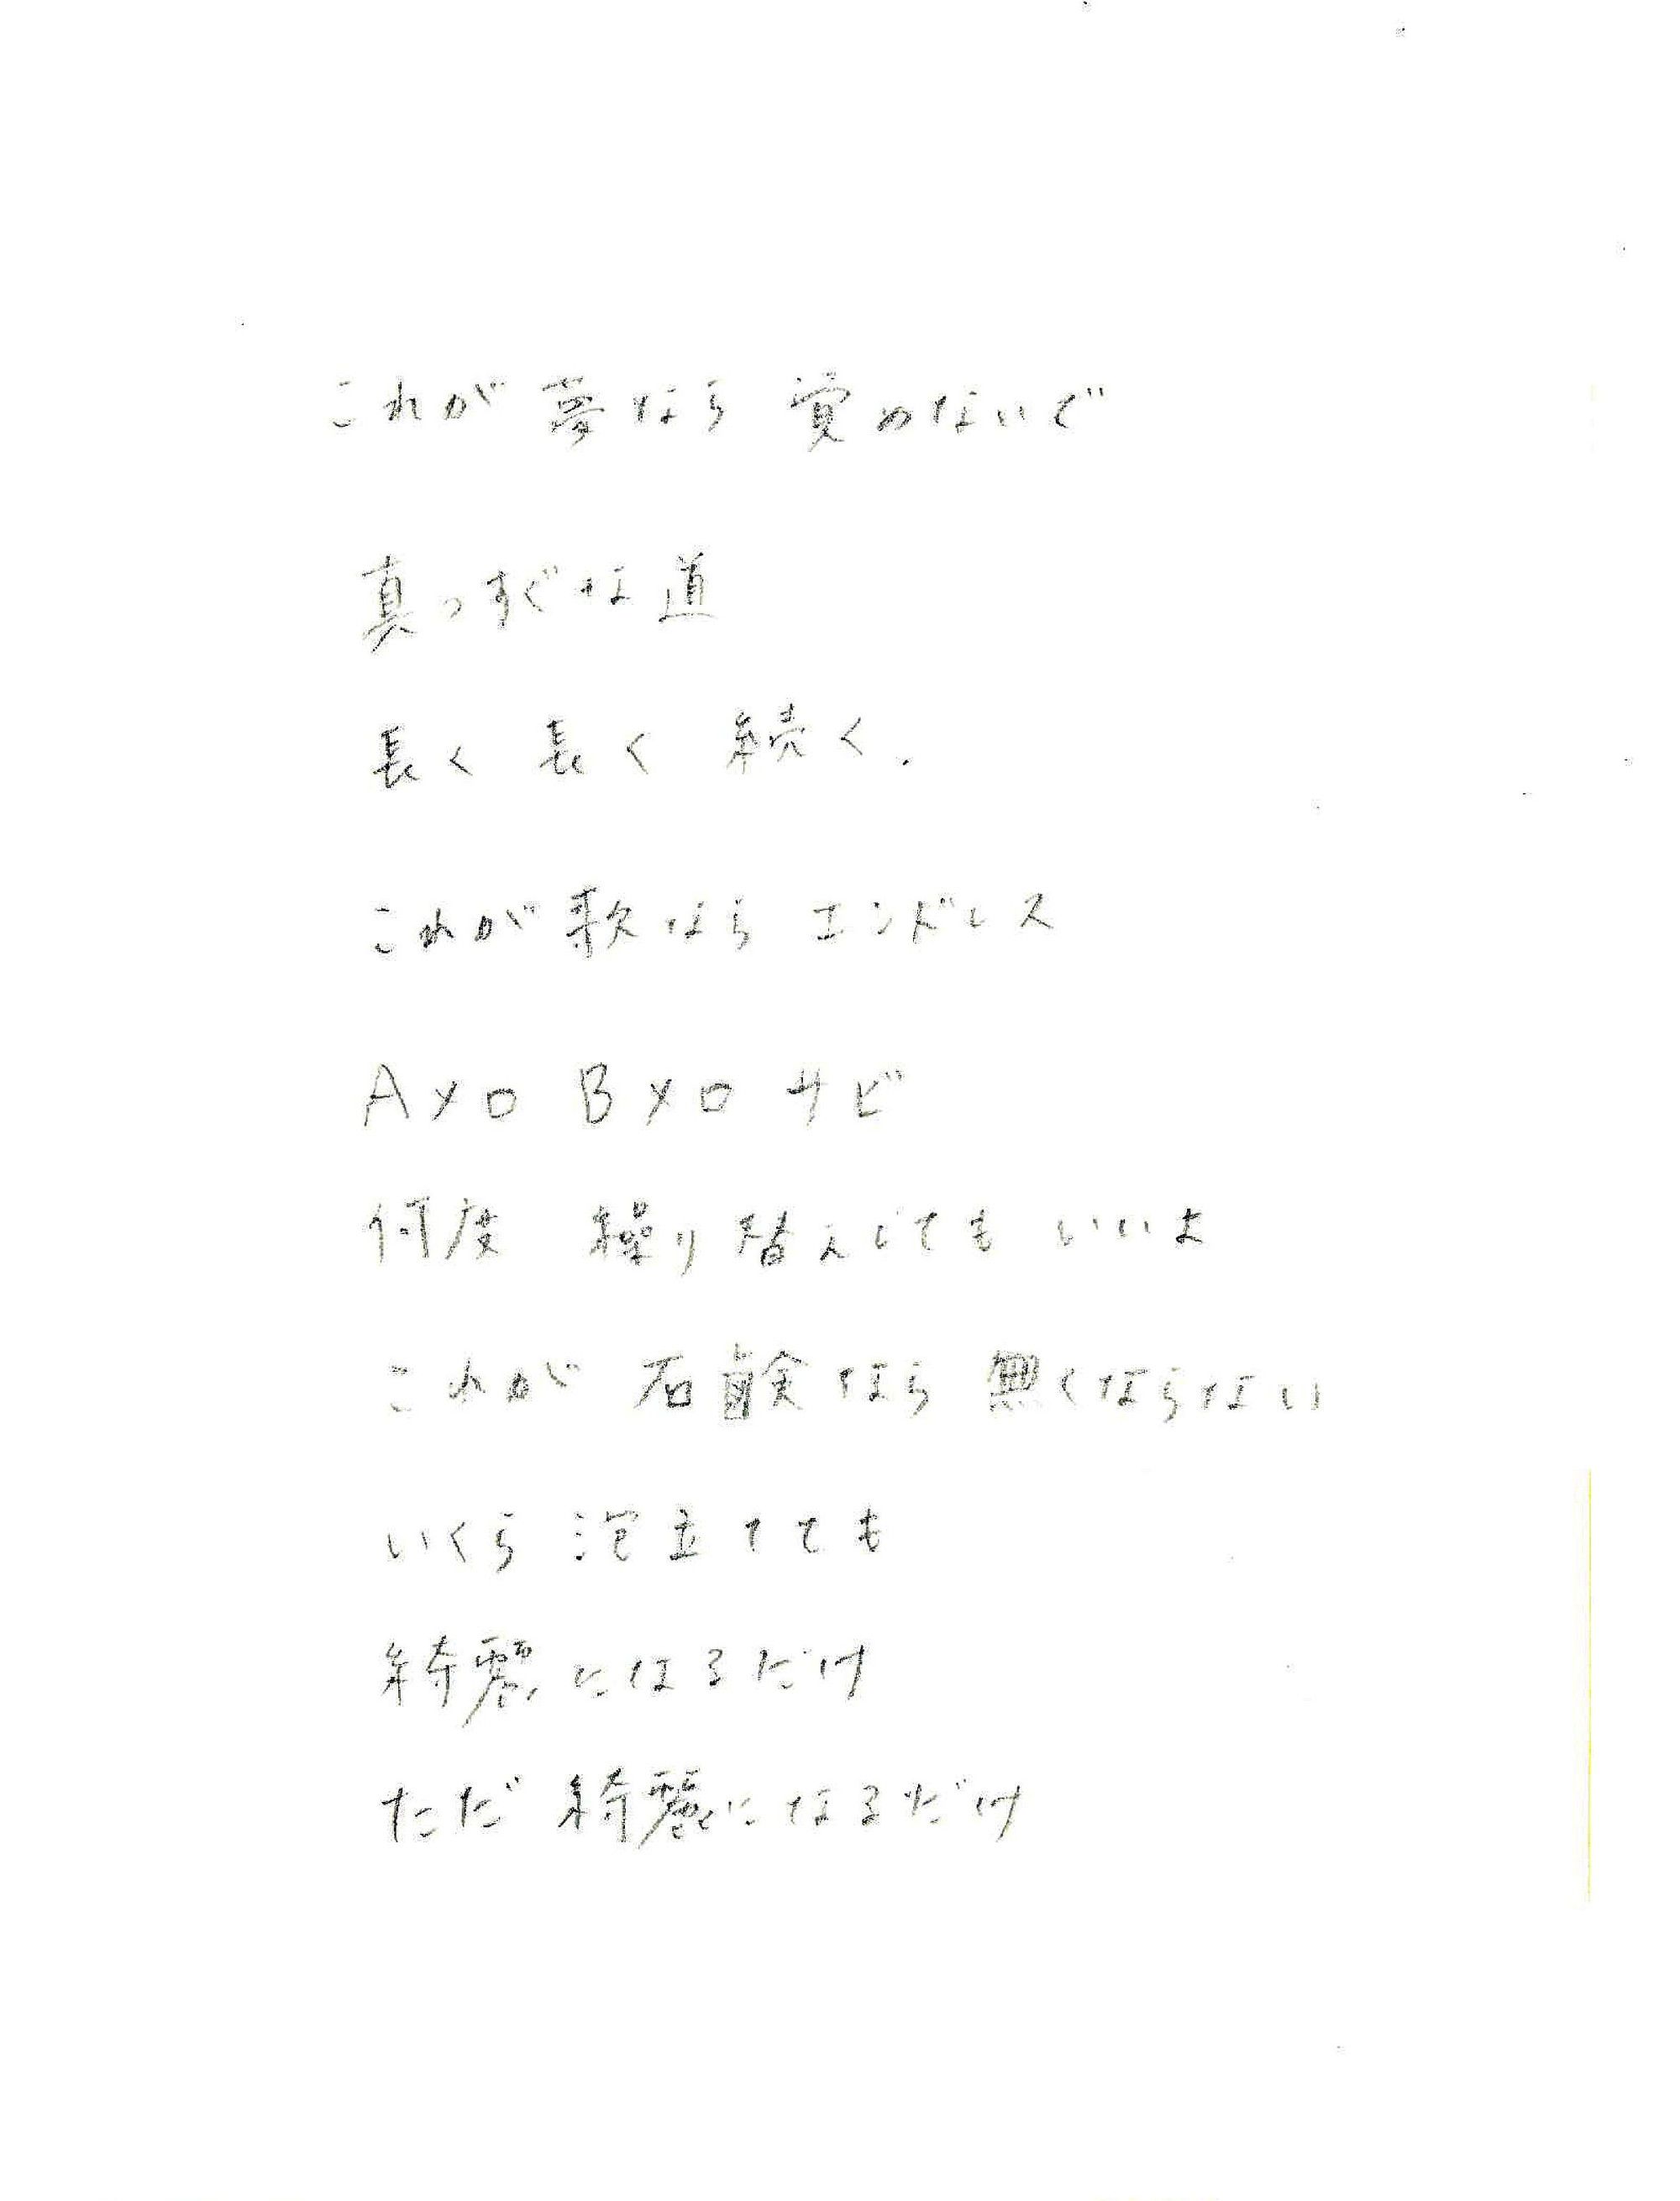 これが 夢なら 覚めないで
真っすぐな道
長く 長く 続く.
これが歌なら エンドレス
Aメロ Bメロ サビ
何度 繰り替えしても いいよ
これが 石鹸なら 無くならない
いくら 泡立てても
綺麗になるだけ
ただ 綺麗になるだけ